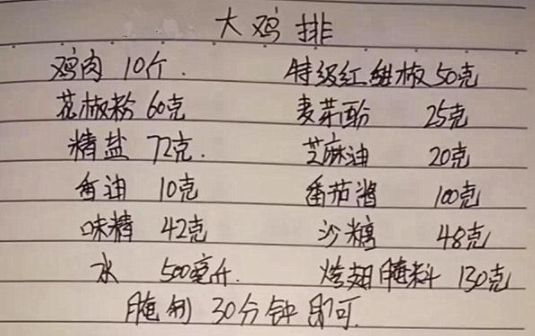 大鸡排
鸡肉 10斤. 特级红甜椒 50克
花椒粉 60克 麦芽酚 25克
精盐 72克. 芝麻油 20克
香油 10克 番茄酱 100克
味精 42克 沙糖 48克
水 500毫升. 烤翅腌料 130克
腌制 30分钟即可.